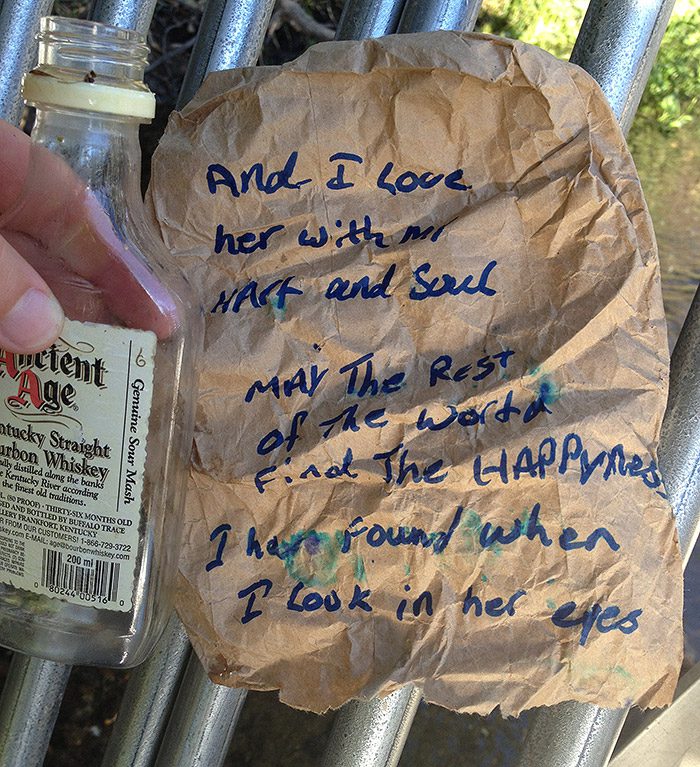 Ancient
Age
6 Genuine Sour Mash
ntucky Straight
urbon Whiskey
ally distilled along the banks
e Kentucky River according
the finest old traditions.
L. (80 PROOF) · THIRTY-SIX MONTHS OLD
ED AND BOTTLED BY BUFFALO TRACE
LLERY FRANKFORT, KENTUCKY
R FROM OUR CUSTOMERS! 1-866-729-3722
key.com E-MAIL: age@bourbonwhiskey.com
200 ml
0 80244 00516 0
And I Love
her with my
HArt and Soul
MAY The ReST
of The World
Find The HAPPyness
I have Found when
I Look in her eyes